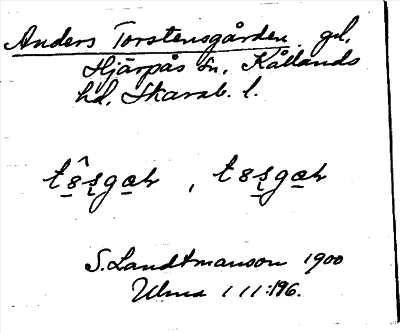 Anders Torstensgården gd.
Hjärpås sn. Kållands
hd. Skarab. l.
S. Landtmanson 1900
Ulma 111:196.